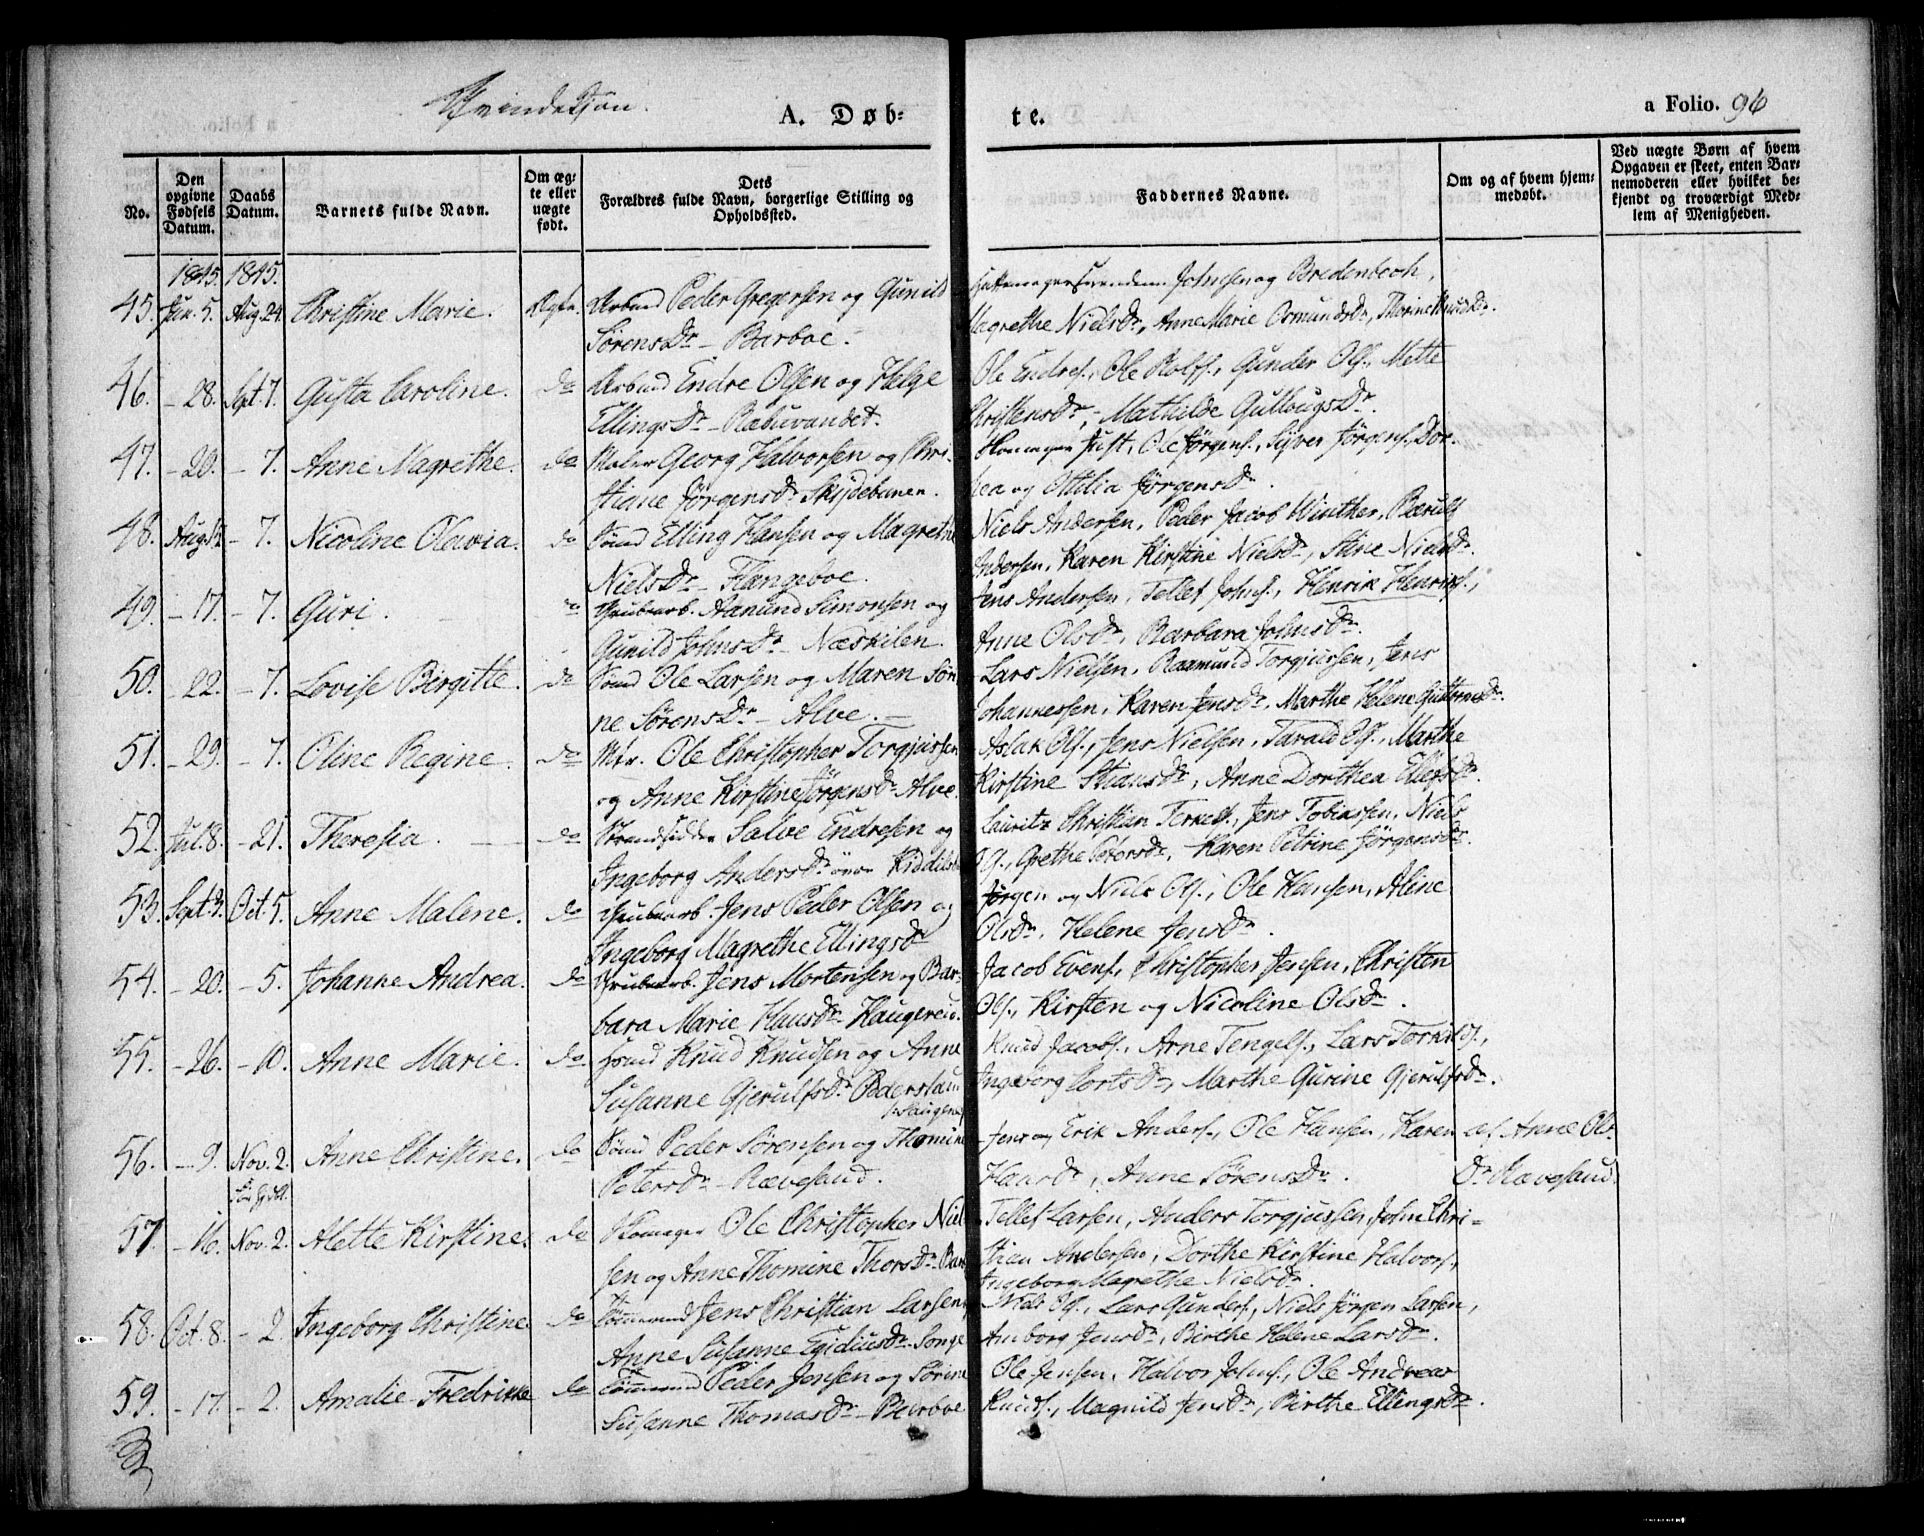 Qvindekjøn.
A. Døb-
te.
a Folio. 96
No.
Den opgivne Fødsels Datum.
Daabs Datum.
Barnets fulde Navn.
Om ægte eller uægte født.
Dets Forældres fulde Navn, borgerlige Stilling og Opholdssted.
Faddernes Navne.
Om og af hvem hjemmedøbt.
Ved uægte Børn af hvem Opgaven er skeet, enten Barnemoderen eller hvilket bekjendt og troværdigt Medlem af Menigheden.
1845. 1845.
45. Jun. 5. Aug. 24. Christine Marie. Ægte. Arbmd Peder Gregersen og Gunild Johnsen og Bredenbech,
Sørensdr - Barboe. Magrethe Nielsdr, Anne Marie Osmundsdr, Thorine Knudsdr.
46. - 28. Sept. 7. Gusta Caroline. do Arbmd Endre Olsen og Helge Ole Endres., Ole Rolfs., Gunder Ols., Mette
Ellingsdr - Christensdr, Mathilde Gullougsdr.
47. - 20. - 7. Anne Magrethe. do Maler Georg Halvorsen og Chri- Skomager Just, Ole Jørgens., Syver Jørgens., Dor-
stiane Jørgensdr Skydebanen. thea og Ottilia Jørgensdr.
48. Aug. - 7. Nicoline Olavia. do Sømd Elling Hansen og Magrethe Niels Andersen, Peder Jacob Winther, Bærulf
Nielsdr - Flangeboe. Andersen, Karen Kirstine Nielsdr, Stine Nielsdr.
49. - 17. - 7. Guri. do Grubearb. Aanund Simonsen og Jens Andersen, Tellef Johns., Henrik Henriks.,
Gunild Johnsdr - Næskilen. Anne Olsdr, Barbara Johnsdr.
50. - 22. - 7. Lovise Birgitte. do Sømd Ole Larsen og Maren Søri- Lars Nielsen, Raamund Torgjussen, Jens
ne Sørensdr - Alve. - Johannessen, Karen Jensdr, Marthe Helene Guttormsdr.
51. - 29. - 7. Oline Regine. do Mtr. Ole Christopher Torgjussen Aslak Ols., Jens Nielsen, Tarald Ols., Marthe
og Anne Kirstine Jørgensdr Alve. Kirstine Stiansdr, Anne Dorthea Ellefsdr.
52. Jul. 8. - 21. Theresia. do Strandsidder Salve Endresen og Lauritz Christian Terkels., Jens Tobiassen, Niels
Ingeborg Andersdr Ols., Grethe Petersdr, Karen Petrine Jørgensdr.
53. Sept. 3. Oct. 5. Anne Malene. do Grubearb. Jens Peder Olsen og Jørgen og Niels Ols., Ole Hansen, Aline
Ingeborg Magrethe Ellingsdr Olsdr, Helene Jensdr.
54. - 20. - 5. Johanne Andrea. do Grubearb. Jens Mortensen og Bar- Jacob Evens., Christopher Jensen, Christen
bara Marie Hansdr Haugereid. Ols., Kirsten og Nicoline Olsdr.
55. - 26. - 10. Anne Marie. do Knud Knudsen og Anne Knud Jacobs., Arne Tengels., Lars Torkilds.,
Susanne Gjerulfsdr Ingeborg Lortsdr, Marthe Gurine Gjerulfsdr.
56. - 9. Nov. 2. Anne Christine. do Sømd Peder Sørensen og Thomine Jens og Erik Anders., Ole Hansen, Karen af Anne Ols-
Petersdr - Rævesand. Hansdr, Anne Sørensdr. dr Rævesand.
57. - 16. Nov. 2. Alette Kirstine. do Skomager Ole Christopher Niel- Tellef Larsen, Anders Torgjussen, John Chri-
sen og Anne Thomine Thorsdr. stian Andersen, Dorthe Kirstine Halvors.,
Ingeborg Magrethe Nielsdr.
58. Oct. 8. - 2. Ingeborg Christine. do Tømmermd Jens Christian Larsen Niels Ols., Lars Gunders., Niels Jørgen Larsen,
Anne Susanne Egidiusdr. Songe Amborg Jensdr, Birthe Helene Larsdr.
59. - 17. - 2. Amalie Fredrikke do Tømmermd Peder Jensen og Sørine Ole Jensen, Halvor Johns., Ole Andreas
Susanne Thomasdr - Barboe Knuds., Magnild Jensdr, Birthe Ellingsdr.